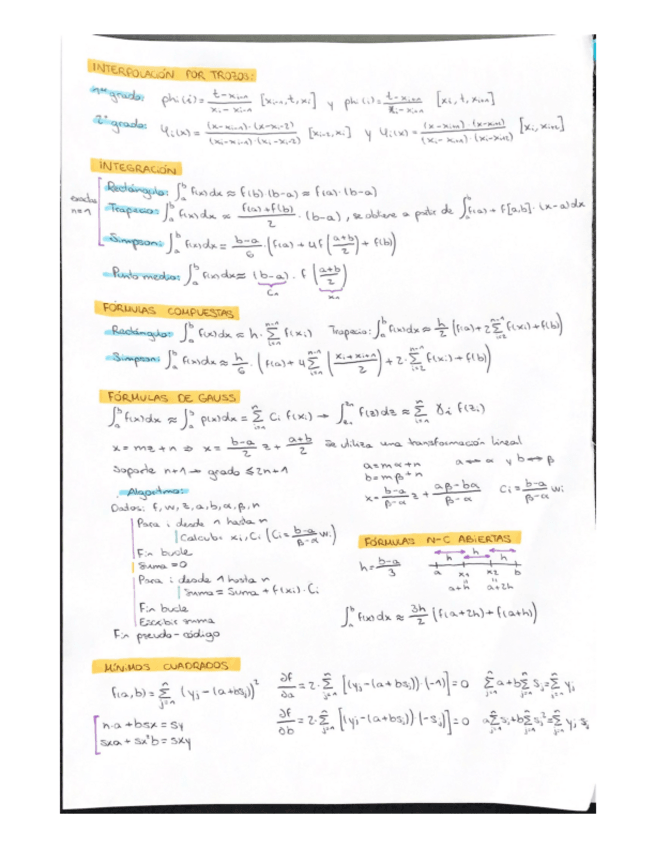 INTERPOLACIÓN POR TROZOS:
1er grado: phi(i) = (t-x_{i-1})/(x_i-x_{i-1}) [x_{i-1}, t, x_i] y phi(i) = (t-x_{i+1})/(x_i-x_{i+1}) [x_i, t, x_{i+1}]
2º grado: φ_i(x) = (x-x_{i-1})·(x-x_{i-2})/(x_i-x_{i-1})·(x_i-x_{i-2}) [x_{i-2}, x_i] y φ_i(x) = (x-x_{i+1})·(x-x_{i+2})/(x_i-x_{i+1})·(x_i-x_{i+2}) [x_i, x_{i+2}]
INTEGRACIÓN
Rectángulo: ∫_a^b f(x)dx ≈ f(b)(b-a) = f(a)·(b-a)
n=1
Trapecio: ∫_a^b f(x)dx ≈ (f(a)+f(b))/2 · (b-a), se obtiene a partir de ∫_a^b f(a) + f[a,b]·(x-a)dx
Simpson: ∫_a^b f(x)dx = (b-a)/6 · (f(a)+4f((a+b)/2)+f(b))
Punto medio: ∫_a^b f(x)dx ≈ (b-a) · f((a+b)/2)
C_1 x_1
FÓRMULAS COMPUESTAS
Rectángulo: ∫_a^b f(x)dx ≈ h·∑_{i=1}^{n-1} f(x_i) Trapecio: ∫_a^b f(x)dx ≈ h/2 (f(a)+2∑_{i=2}^{n-1} f(x_i)+f(b))
Simpson: ∫_a^b f(x)dx ≈ h/6 · (f(a)+4∑_{i=1}^{n-1} ((x_i+x_{i+1})/2) + 2·∑_{i=2}^{n-1} f(x_i)+f(b))
FÓRMULAS DE GAUSS
∫_a^b f(x)dx ≈ ∫_a^b p(x)dx = ∑_{i=1}^n C_i f(x_i) → ∫_{z_1}^{z_n} f(z)dz ≈ ∑_{i=1}^n γ_i f(z_i)
x = mz+n ⇒ x = (b-a)/2 z + (a+b)/2 Se utiliza una transformación lineal
Soporte n+1 → grado ≤ 2n+1
a = mα+n a ↔ α y b ↔ β
b = mβ+n
x = (b-a)/(β-α) z + (aβ-bα)/(β-α) C_i = (b-a)/(β-α) w_i
Algoritmo:
Datos: f, w, z, a, b, α, β, n
Para i desde 1 hasta n
Calcula x_i, C_i (C_i = (b-a)/(β-α) w_i)
Fin bucle
Suma = 0
Para i desde 1 hasta n
Suma = Suma + f(x_i)·C_i
Fin bucle
Escribir suma
Fin pseudo-código
FÓRMULAS N-C ABIERTAS
h = (b-a)/3
h h h
a x1 x2 b
a+h a+2h
∫_a^b f(x)dx ≈ 3h/2 (f(a+2h)+f(a+h))
MÍNIMOS CUADRADOS
f(a,b) = ∑_{j=1}^n (y_j-(a+bs_j))^2 ∂f/∂a = 2·∑_{j=1}^n [(y_j-(a+bs_j))·(-1)] = 0 ∑_{j=1}^n a + b∑_{j=1}^n s_j = ∑_{j=1}^n y_j
∂f/∂b = 2·∑_{j=1}^n [(y_j-(a+bs_j))·(-s_j)] = 0 a∑_{j=1}^n s_j + b∑_{j=1}^n s_j^2 = ∑_{j=1}^n y_j s_j
n·a + bsx = sy
sxa + sx²b = sxy